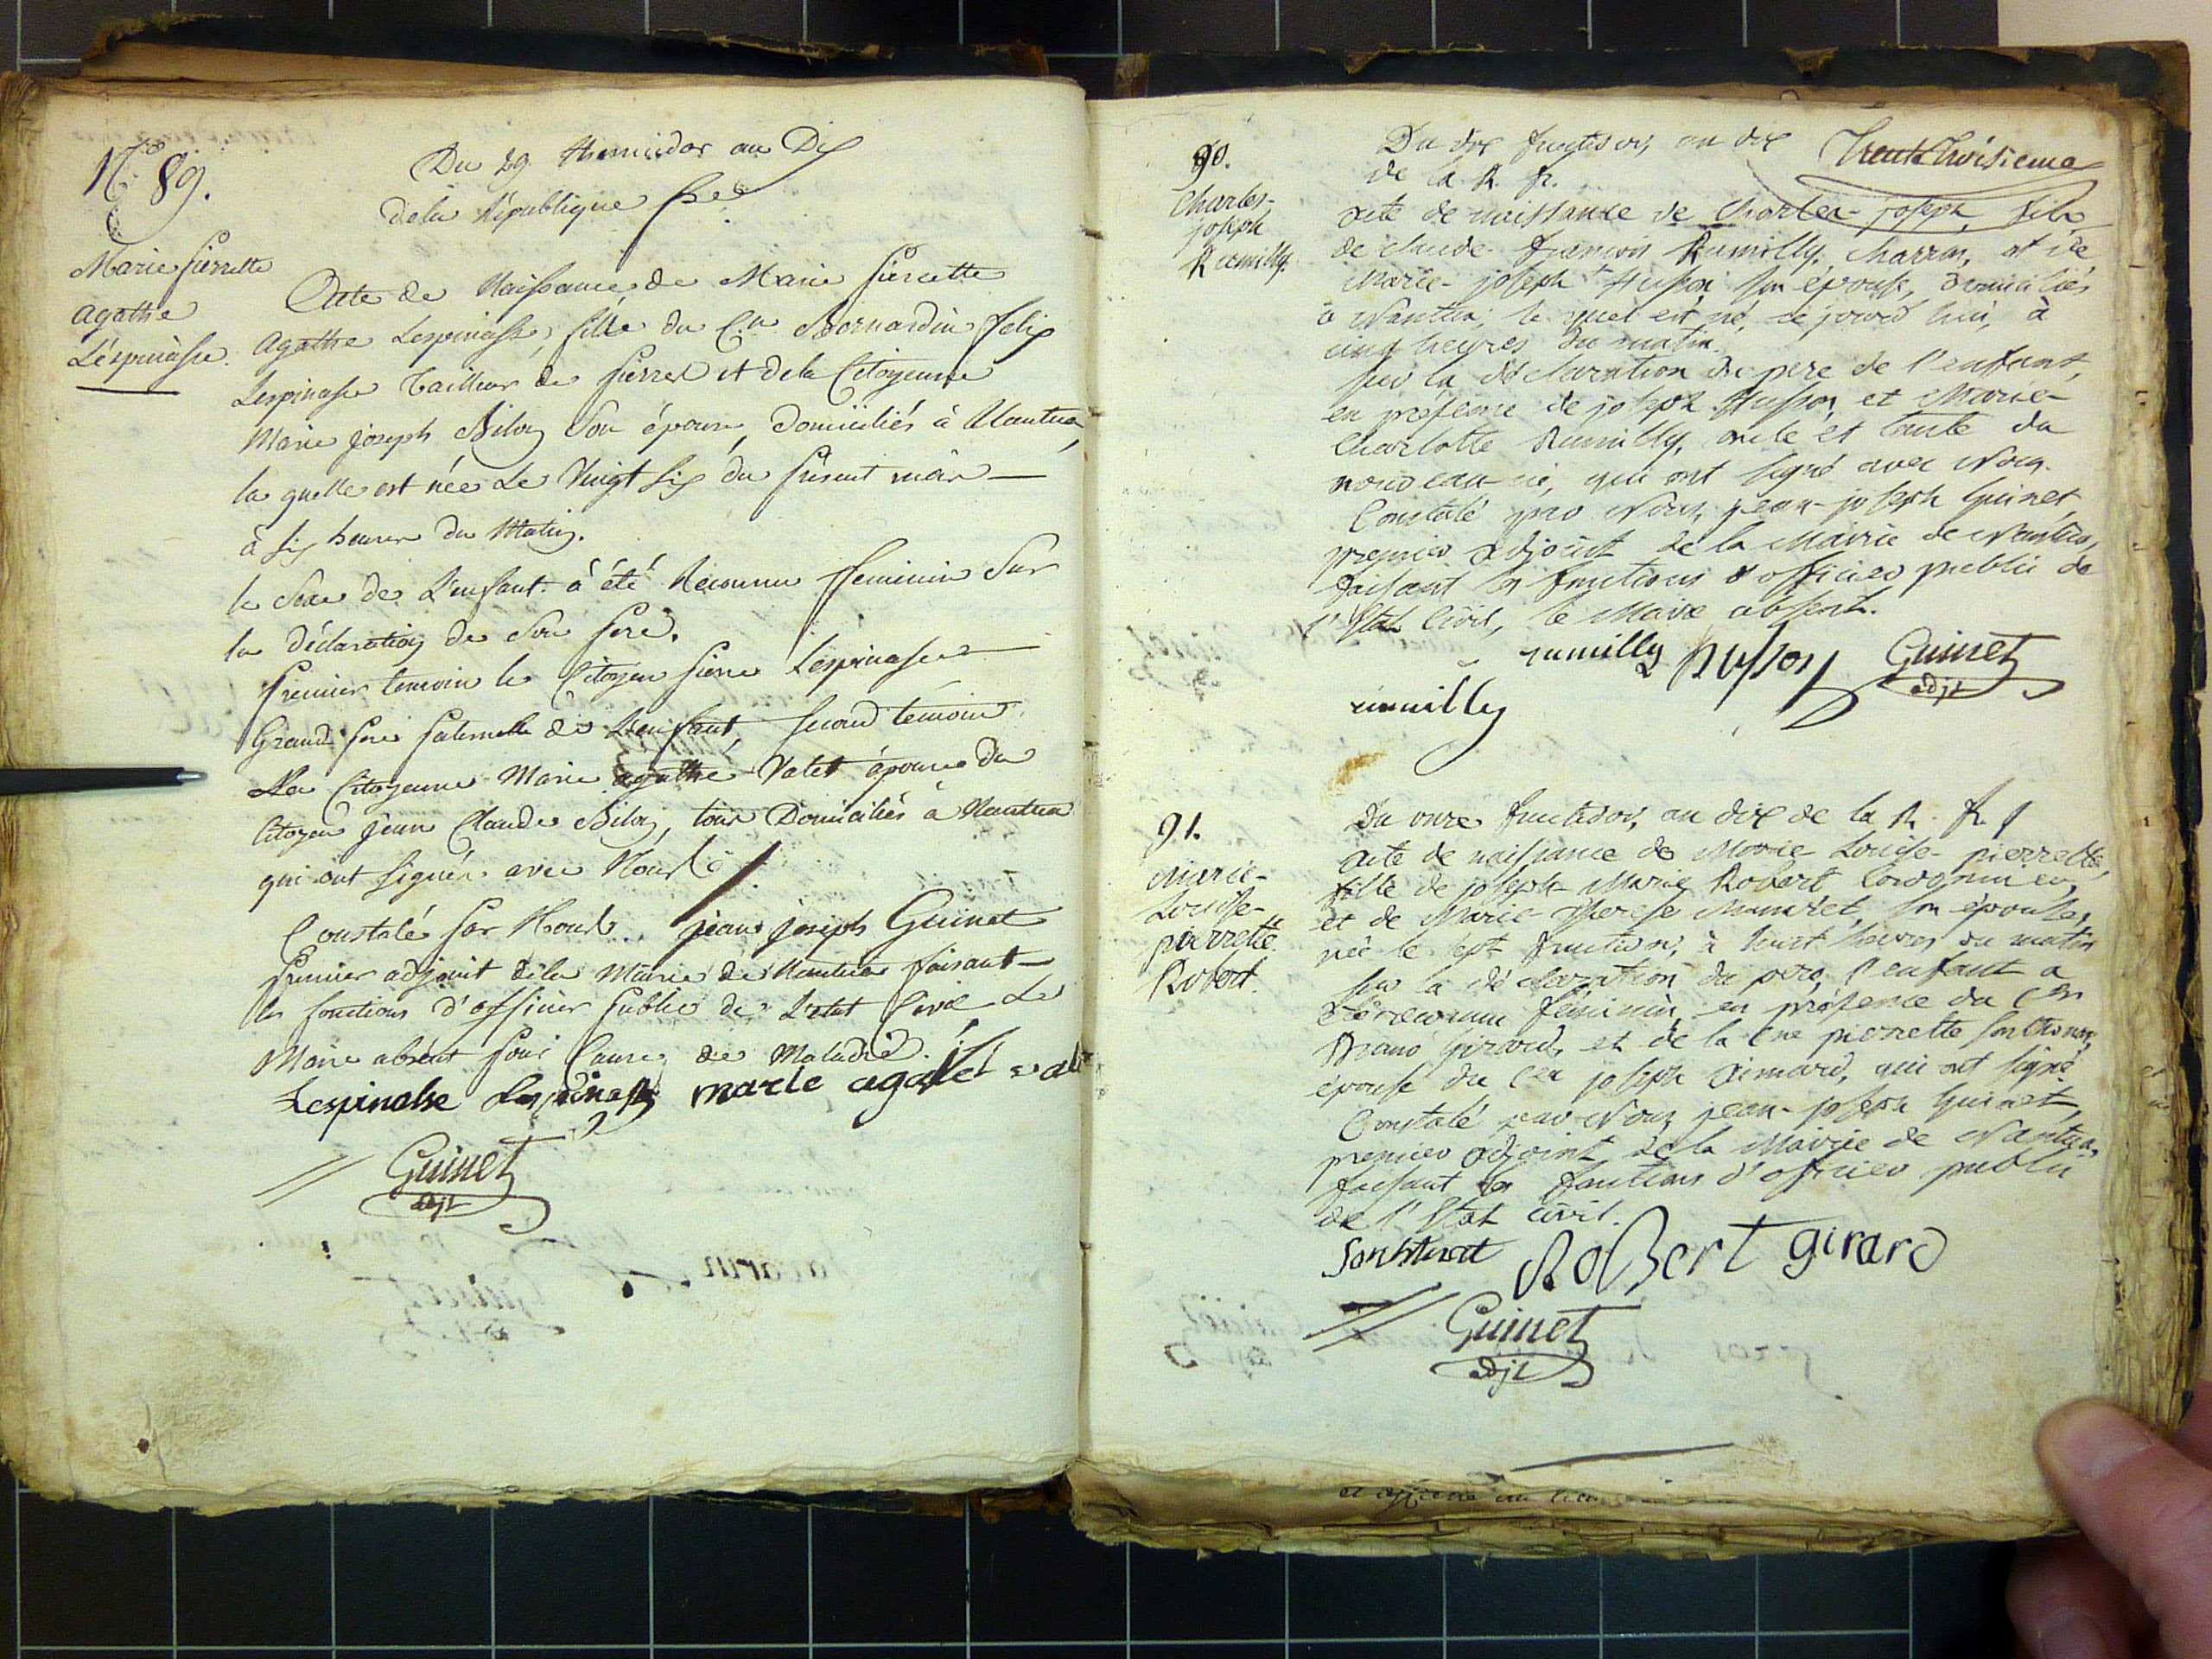 No. 89.
Du 29 thermidor an Dix
dela République fse
Marie pierrette
agathe
Léspinasse.
Acte de Naissance de Marie pierrette
agathe Lespinasse, fille du Cen. Bernardin felix
Lespinasse Tailleur de pierres et dela Citoyenne
Marie joseph Biloz Son épouse, Domiciliés à Nantua,
la quelle est née Le Vingt Six du présent mois
à Six heures du Matin.
le Sexe de L'enfant à été Reconnu feminin Sur
la déclaration de Son pere.
premier temoin le Citoyen pierre Lespinasse
Grand pere paternelle de L'enfant, Second témoin
La Citoyenne Marie agathe Valet épouse du
Citoyen jean Claude Biloz, tous Domiciliés à Nantua
qui ont Signés avec Nous
Constaté par Nous jean joseph Guinet
premier adjoint dela Mairie de Nantua faisant
les fonctions d'officier public de L'etat Civil Le
Maire absent pour Cause de Maladie.
Lespinasse Lespinasse marie agatet val
Guinet
adjt
Trente troisieme
90.
Charles-
joseph
Rumilly.
Du dix fructidor, an dix
de la R. fr.
acte de naissance de Charles-joseph, fils
de claude françois Rumilly, charron, et de
Marie-joseph Husson son épouse, domiciliés
à Nantua; le quel est né, ce jourd'hui, à
cinq heures du matin.
sur la déclaration du pere de l'enfant,
en présence de joseph Husson, et Marie-
Charlotte Rumilly, oncle et tante du
nouveau-né, qui ont signé avec Nous.
Constaté par Nous jean-joseph Guinet,
premier adjoint de la Mairie de Nantua,
faisant les fonctions d'officier public de
l'Etat Civil, le Maire absent.
rumilly husson Guinet
adjt
rumilly
91.
Marie-
Louise-
pierrette
Robert.
Du onze fructidor, an dix de la R. fr.
acte de naissance de Marie Louise-pierrette,
fille de joseph-Marie Robert Cordonnier,
et de Marie-Therese son épouse,
née le sept fructidor, à huit heures du matin
sur la déclaration du pere, l'enfant a
été reconnu féminin, en présence du Cen
Girard, et de la Cne pierrette
épouse du Cen joseph aimard, qui ont signé.
Constaté par Nous jean-joseph Guinet,
premier adjoint de la Mairie de Nantua,
faisant les fonctions d'officier public
de l'Etat civil.
Robert girard
Guinet
adjt